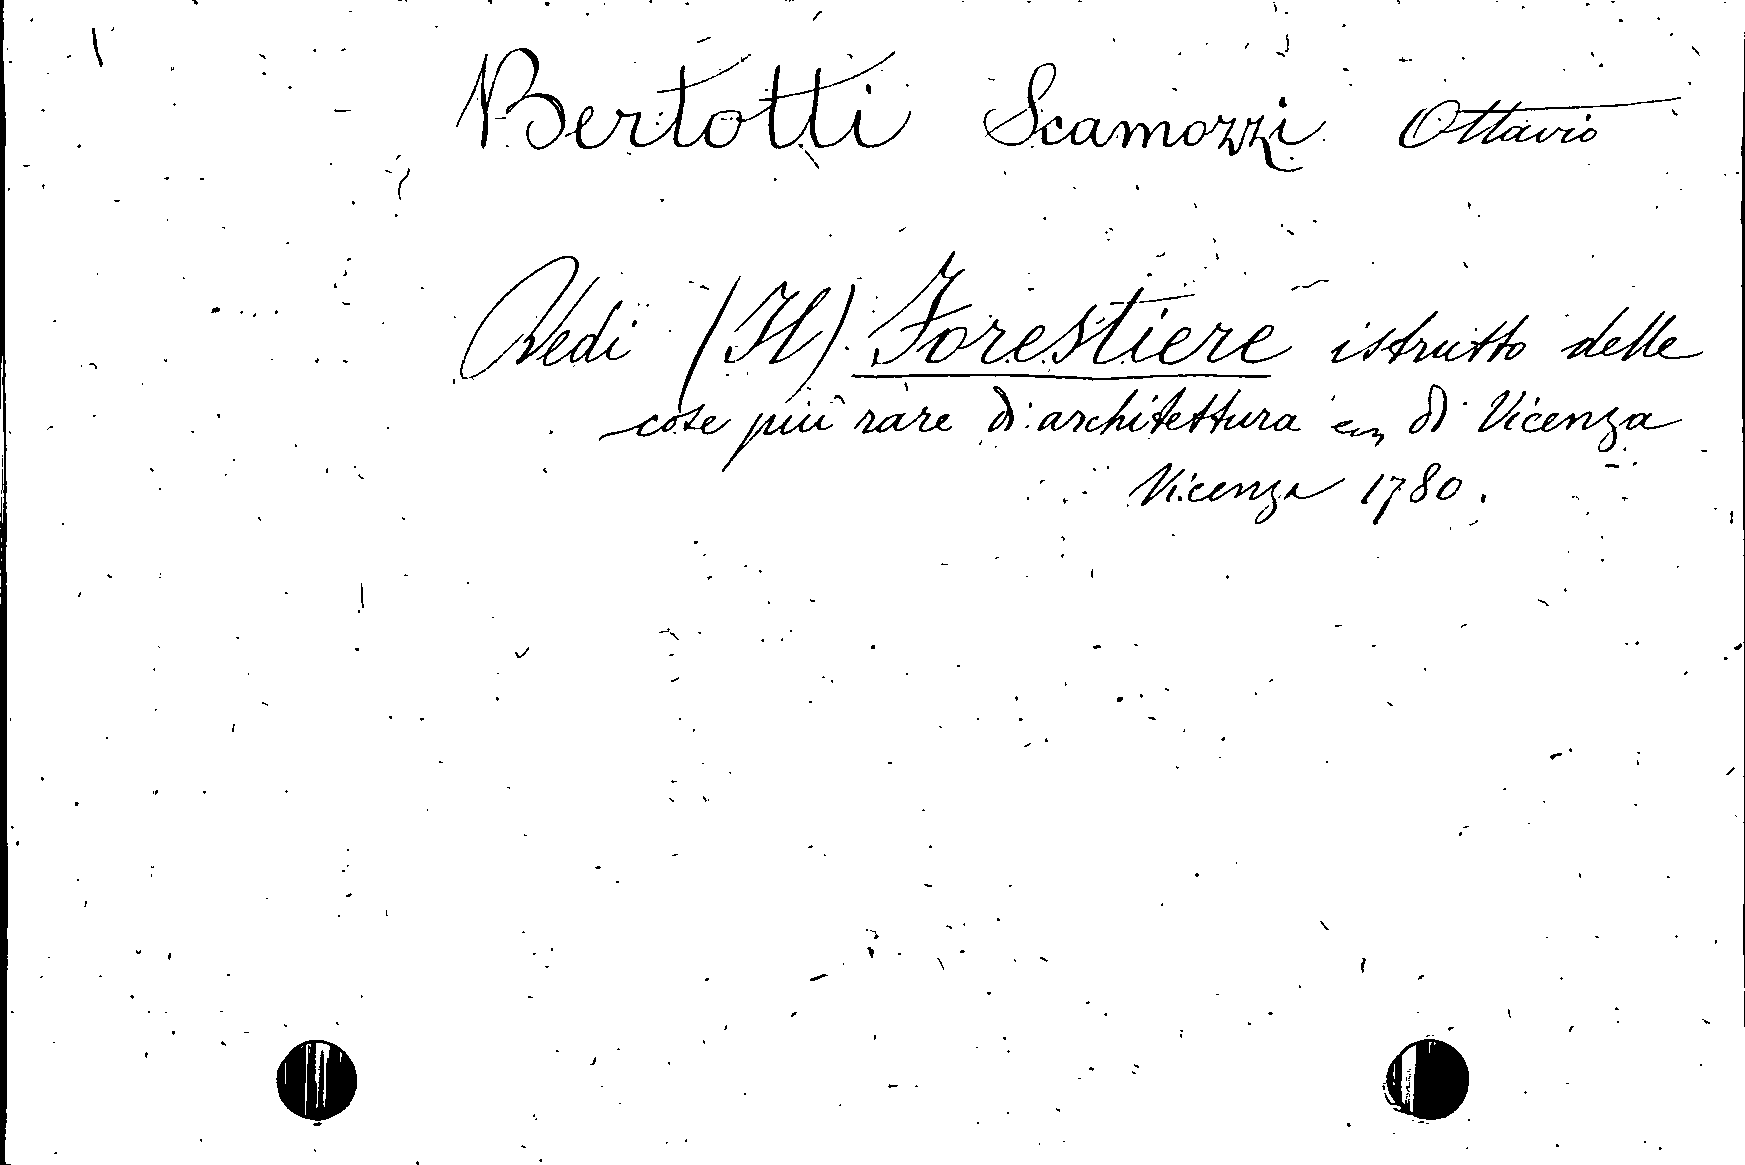 Bertotti Scamozzi Ottavio
Vedi (Il) Forestiere istruito delle
cose più rare di architettura di Vicenza
Vicenza 1780.